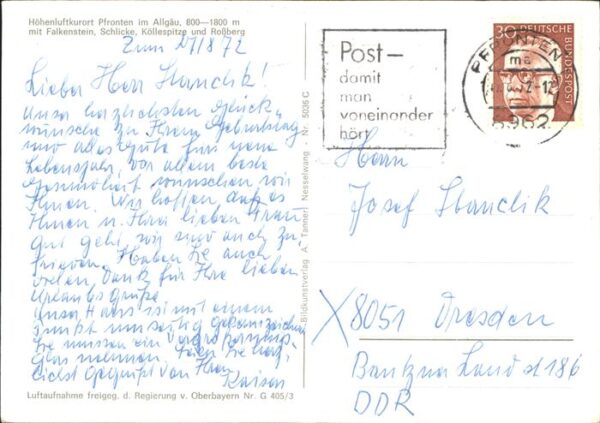 Höhenluftkurort Pfronten im Allgäu, 800—1800 m
mit Falkenstein, Schlicke, Köllespitze und Roßberg
Zum 27/8 72
Lieber Herr Stanclik!
Unsre herzlichsten Glück-
wünsche zu Ihrem Geburtstag
und alles Gute fürs neue
Lebensjahr, vor allem beste
Gesundheit wünschen wir
Ihnen. Wir hoffen, daß es
Ihnen u. Ihrer lieben Frau
gut geht, wir sind auch zu-
frieden. Haben Sie auch
vielen Dank für Ihre lieben
Urlaubsgrüße.
Unser Haus ist mit einem
Punkt unseitig gekennzeichnet
Sie müssen ein Vergrößerungs-
glas nehmen. Seien Sie herz-
lichst gegrüßt von Ihren
Kaiser
Luftaufnahme freigeg. d. Regierung v. Oberbayern Nr. G 405/3
Bildkunstverlag A. Tanner, Nesselwang - Nr. 5036 C
Post—
damit
man
voneinander
hört
PFRONTEN
8962
30 DEUTSCHE
BUNDESPOST
Herrn
Josef Stanclik
X 8051 Dresden
Bautzner Land
DDR